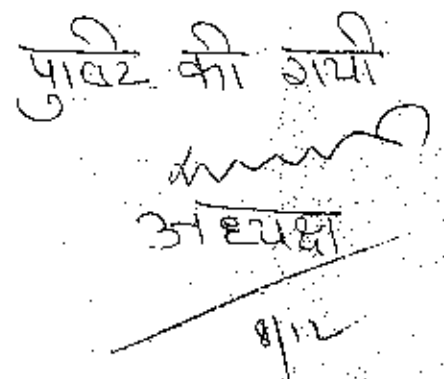 पुष्टि की गयी
अध्यक्ष
8/12